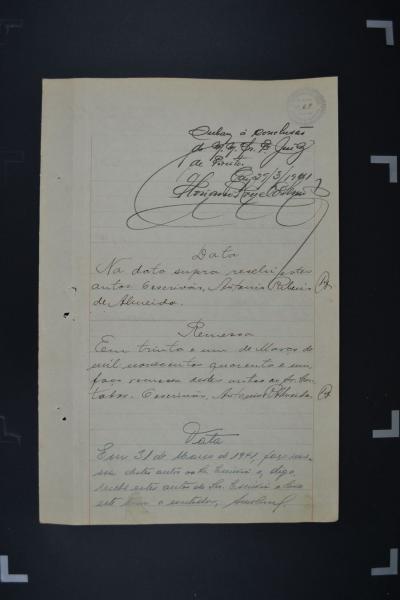 Subam à conclusão
do M. M. Dr. Juiz
de Direito.
27/3/1941
Data
Na data supra recebi estes
autos. O escrivão, Antonio Ribeiro
de Almeida.
Remessa
Em trinta e um de Março de
mil novecentos quarenta e um
faço remessa destes autos ao Sr. Con-
tador. O escrivão, Antonio R Almeida
Data
Em 31 de Março de 1941, faço remes-
sa destes autos ao Sr. Escrivão, digo,
recebi estes autos do Sr. Escrivão e
este termo o contador,